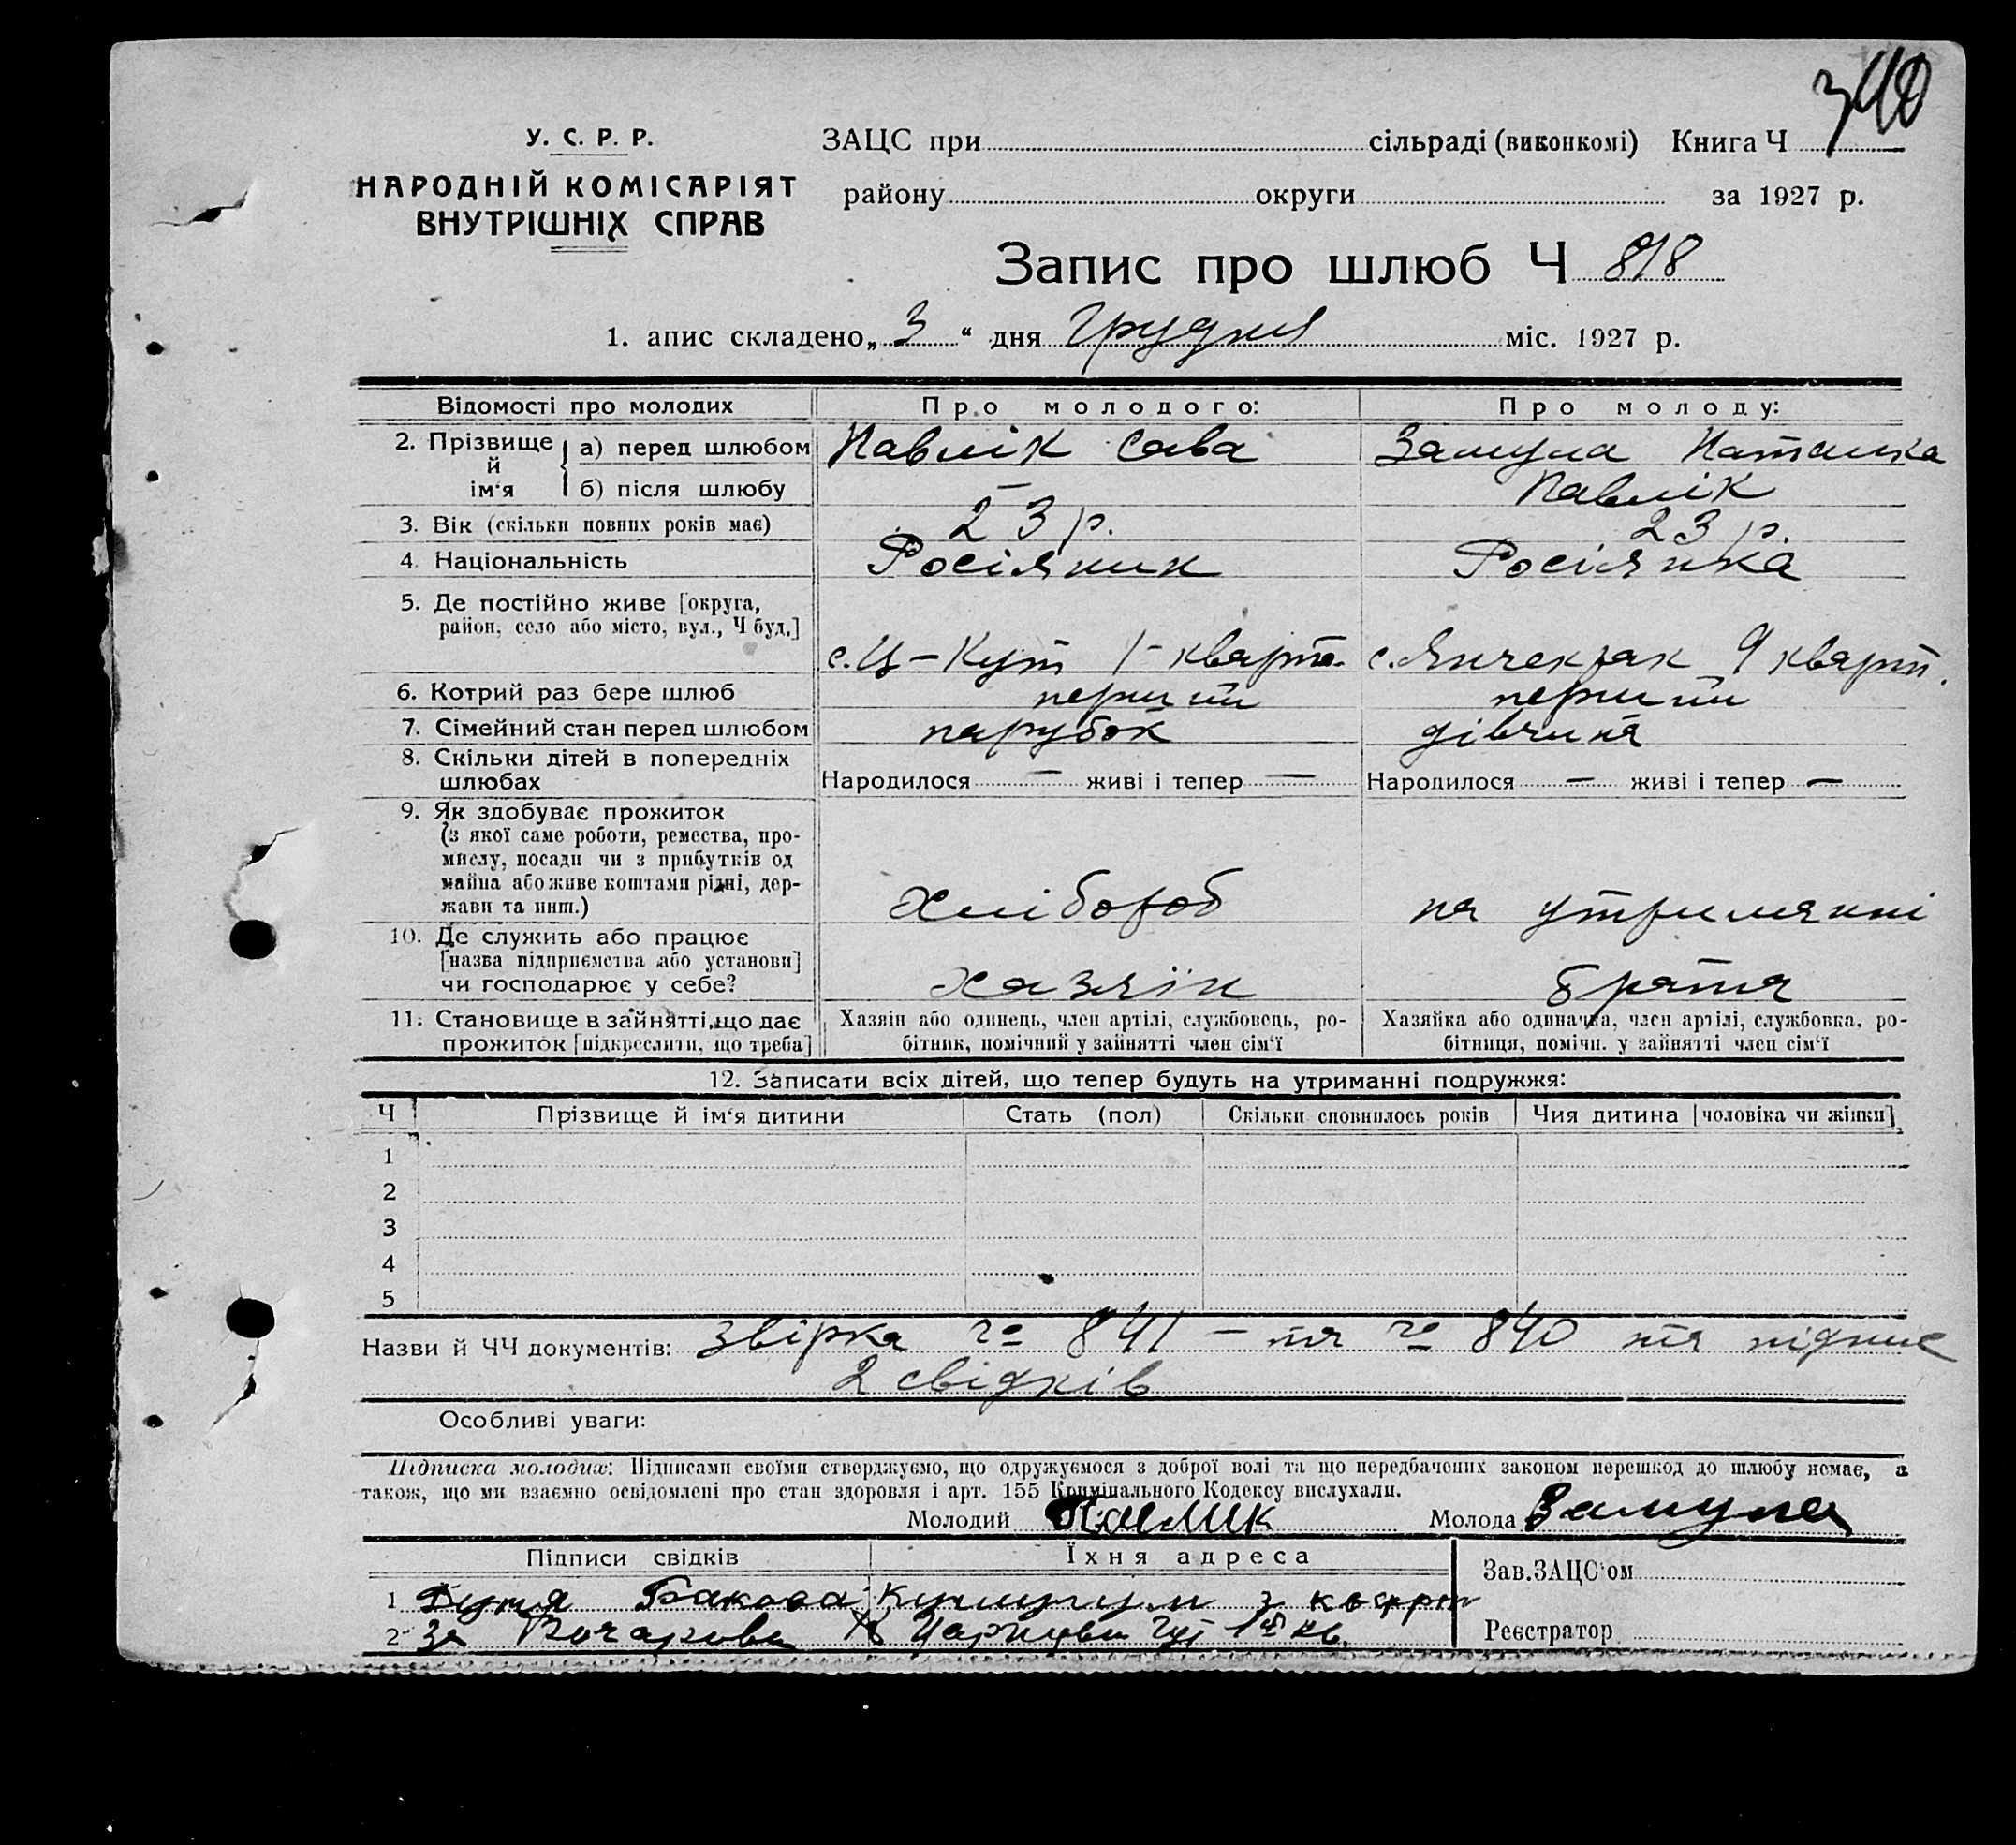 340
У. С. Р. Р.
НАРОДНІЙ КОМІСАРІЯТ
ВНУТРІШНІХ СПРАВ
ЗАЦС при сільраді (виконкомі) Книга Ч
району округи за 1927 р.
Запис про шлюб Ч 818
1. апис складено „3“ дня Грудня міс. 1927 р.
Відомості про молодих Про молодого: Про молоду:
2. Прізвище й ім‘я а) перед шлюбом Павлік Сава Замула Наталка
б) після шлюбу — Павлік
3. Вік (скільки повних років має) 23 р. 23 р.
4. Національність Росіяник Росіянка
5. Де постійно живе [округа,
район, село або місто, вул., Ч буд.]
с. Ц-Кут 1-кварт. с. Янчекрак 9 кварт.
6. Котрий раз бере шлюб перший перший
7. Сімейний стан перед шлюбом парубок дівчина
8. Скільки дітей в попередніх
шлюбах Народилося — живі і тепер — Народилося — живі і тепер —
9. Як здобуває прожиток
(з якої саме роботи, ремества, про-
мислу, посади чи з прибутків од
майна або живе коштами рідні, дер-
жави та инш.) Хлібороб на утриманні
10. Де служить або працює
[назва підприємства або установи]
чи господарює у себе? хазяїн брата
11. Становище в зайнятті, що дає Хазяїн або одинець, член артілі, службовець, ро- Хазяйка або одиначка, член артілі, службовка, ро-
прожиток [підкреслити, що треба] бітник, помічний у зайнятті член сім‘ї бітниця, помічн. у зайнятті член сім‘ї
12. Записати всіх дітей, що тепер будуть на утриманні подружжя:
Ч Прізвище й ім‘я дитини Стать (пол) Скільки сповнилось років Чия дитина [чоловіка чи жінки]
1
2
3
4
5
Назви й ЧЧ документів: звірка Ч 841 — та Ч 840 та підпис
2 свідків
Особливі уваги:
Підписка молодих: Підписами своїми стверджуємо, що одружуємося з доброї волі та що передбачених законом перешкод до шлюбу немає, а
також, що ми взаємно освідомлені про стан здоровля і арт. 155 Кримінального Кодексу вислухали.
Молодий Павлик Молода Замула
Підписи свідків Їхня адреса
Зав. ЗАЦС‘ом
1 Бакова Кушугум 3 кварт
2 За Бочарова
Реєстратор